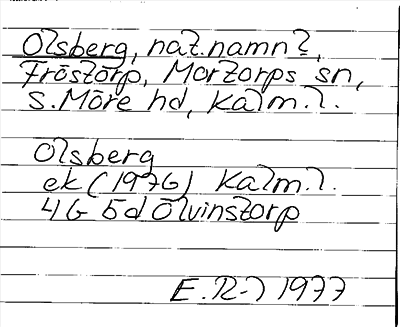 Olsberg, nat.namn?,
Fröstorp, Mortorps sn,
S. Möre hd, Kalm. l.
Olsberg
ek (1976) Kalm. l.
4G 5d Ölvinstorp
E. R-J 1977